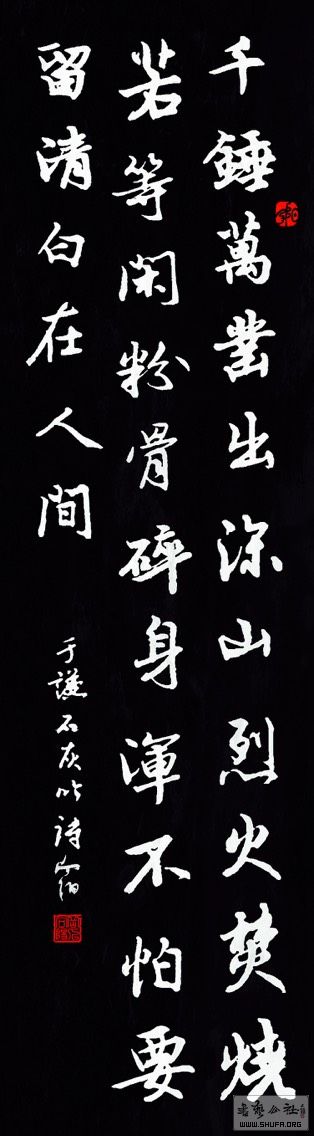 千錘萬鑿出深山烈火焚燒
若等閑粉骨碎身渾不怕要
留清白在人間
于謙石灰吟詩
WWW.SHUFA.ORG